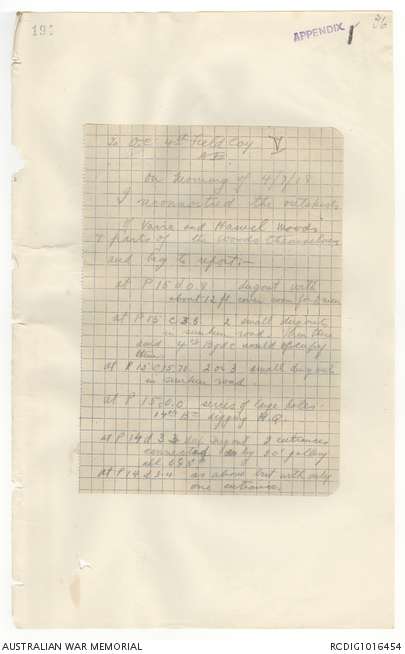 191
APPENDIX 1
To O.C. 4th Field Coy
A.E.
On Morning of 4/7/18
I reconnoitred the outskirts
of Vaire and Hamel Woods
& parts of the Woods themselves
and beg to report:-
at P 15 d 0.9 dugout with
about 12 ft cover room for
at P 15 c 3.5 2 small dugouts
in sunken road
said 4th Bgde would occupy
them.
at P 15 c 15.70 2 or 3 small dugouts
in sunken road.
at P 15.0.0 series of large holes.
14th Bn digging H.Q.
at P 14 d 3.3 dugout 2 entrances
connected by 20' gallery
all 6'6" x
at P 14 d 3.4 as above but with only
one entrance.
AUSTRALIAN WAR MEMORIAL
RCDIG1016454